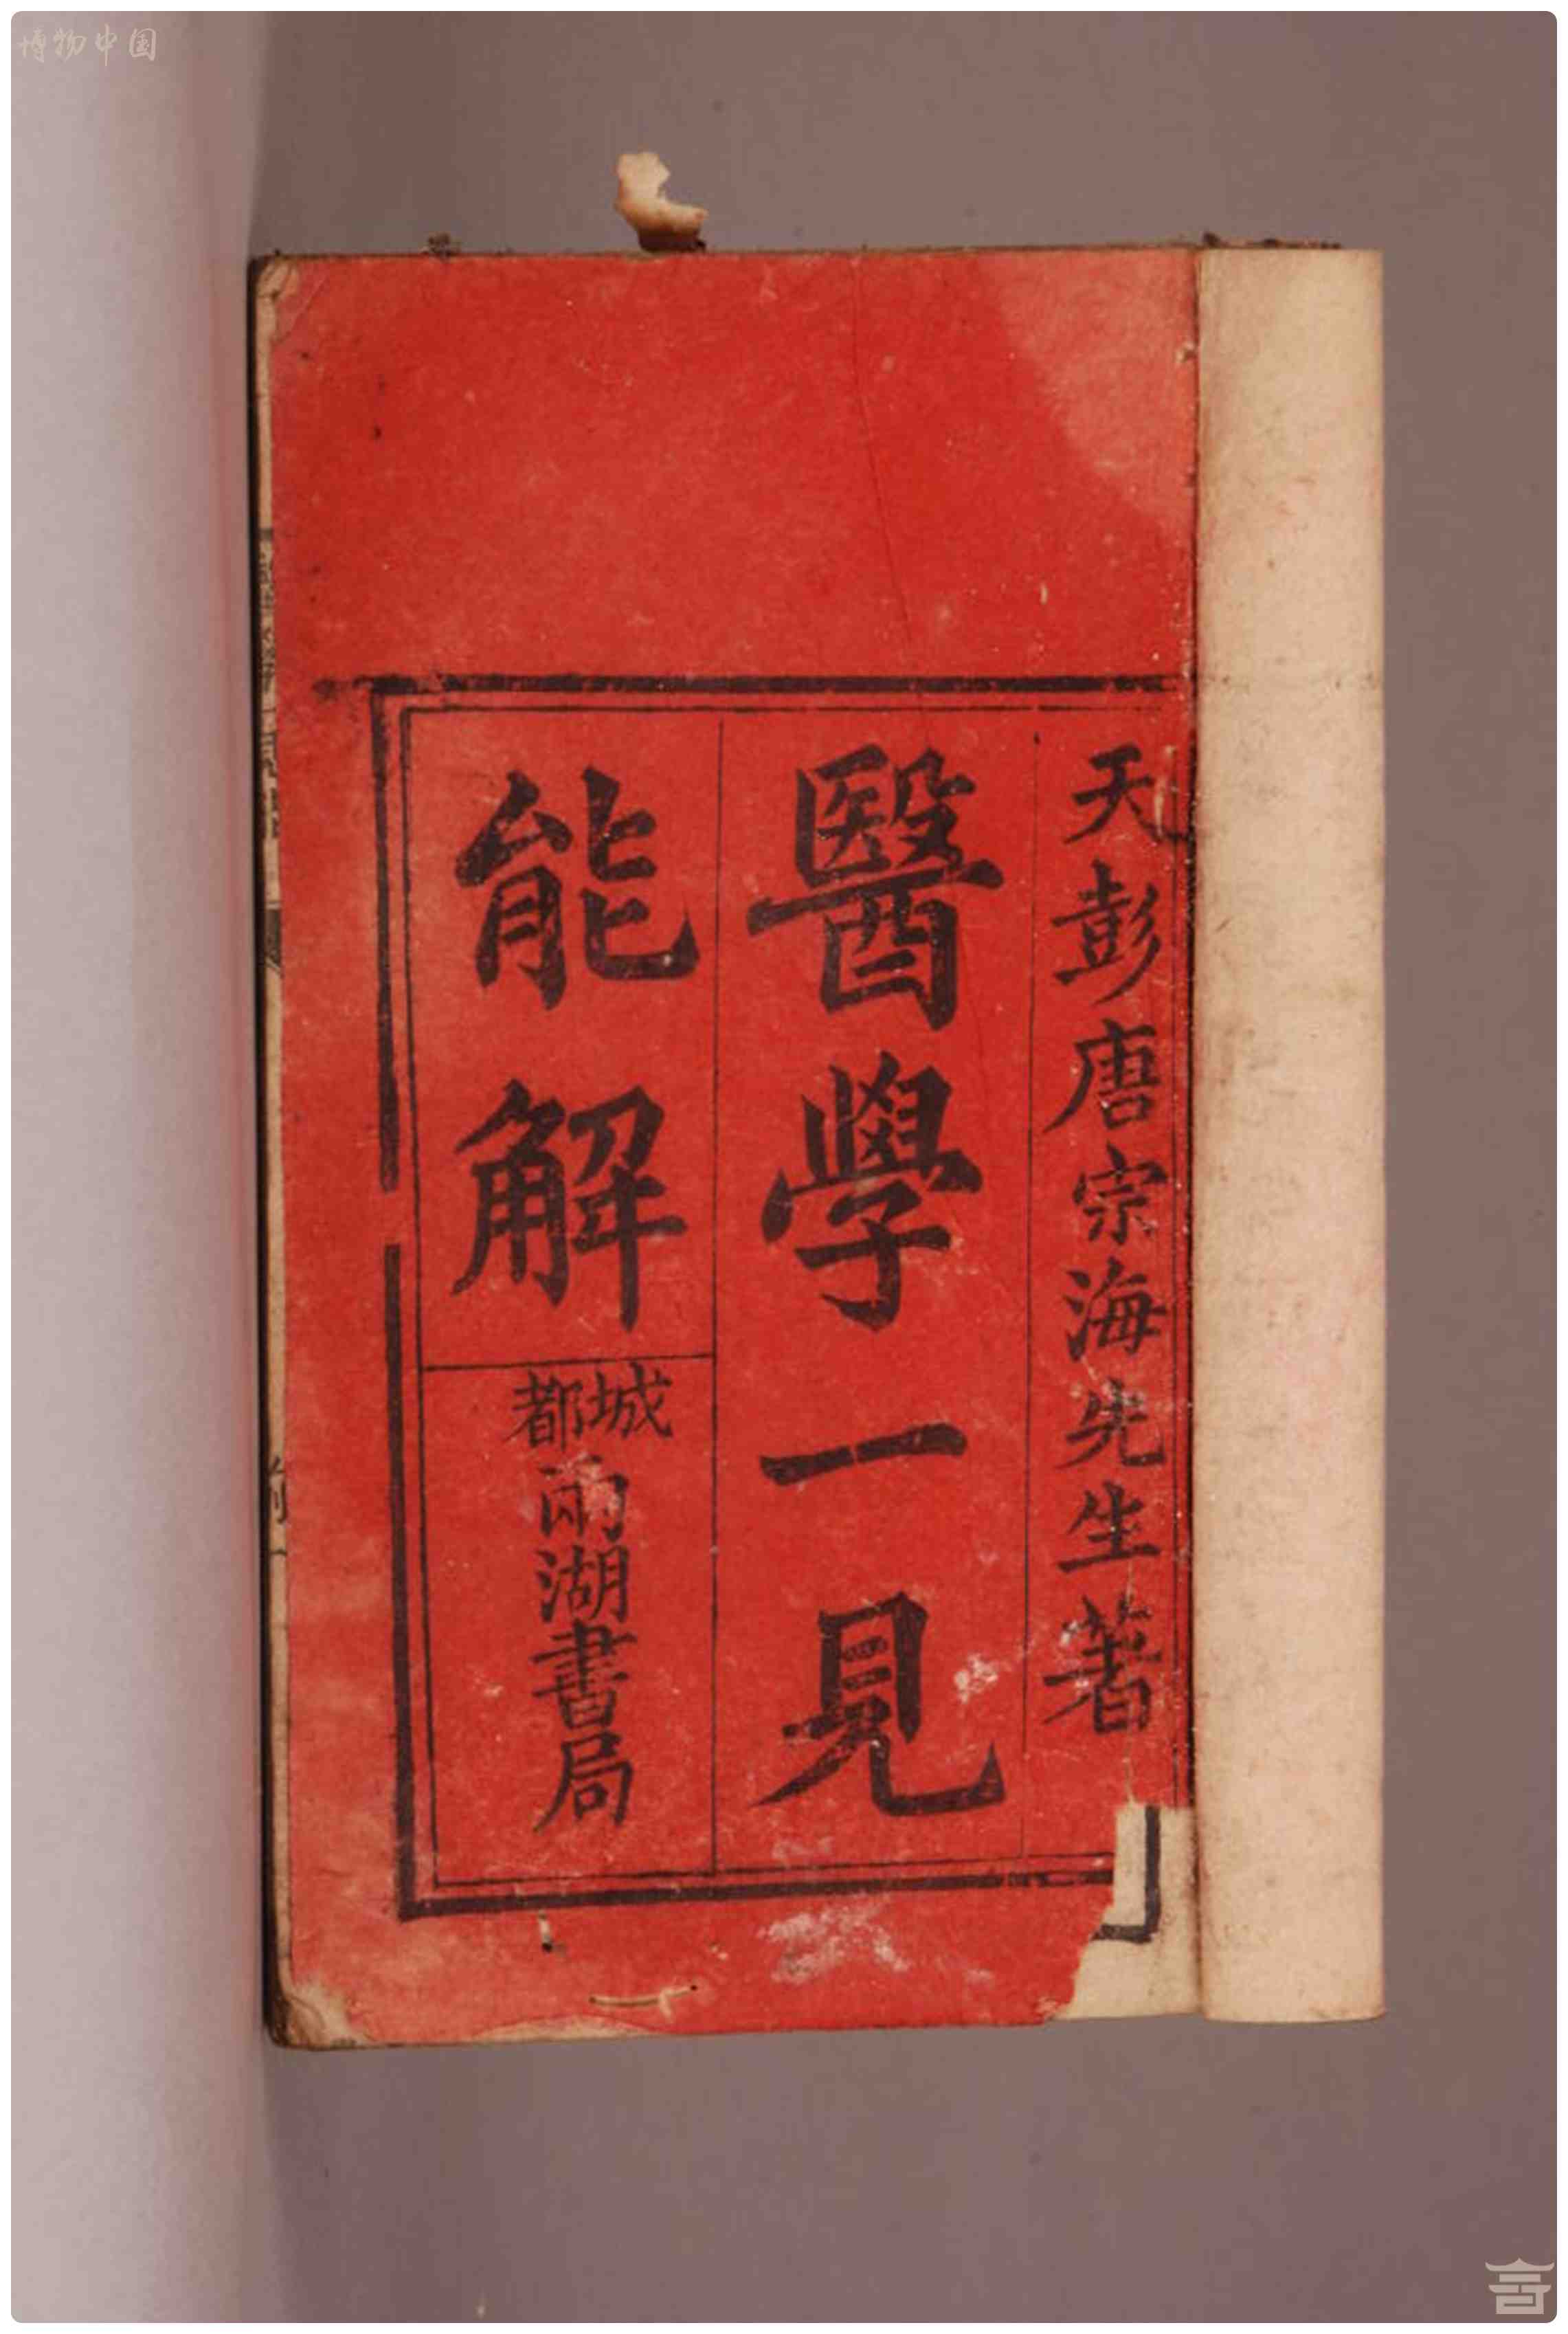 博物中国
天彭唐宗海先生著
醫學一見
能解
城都
兩湖書局